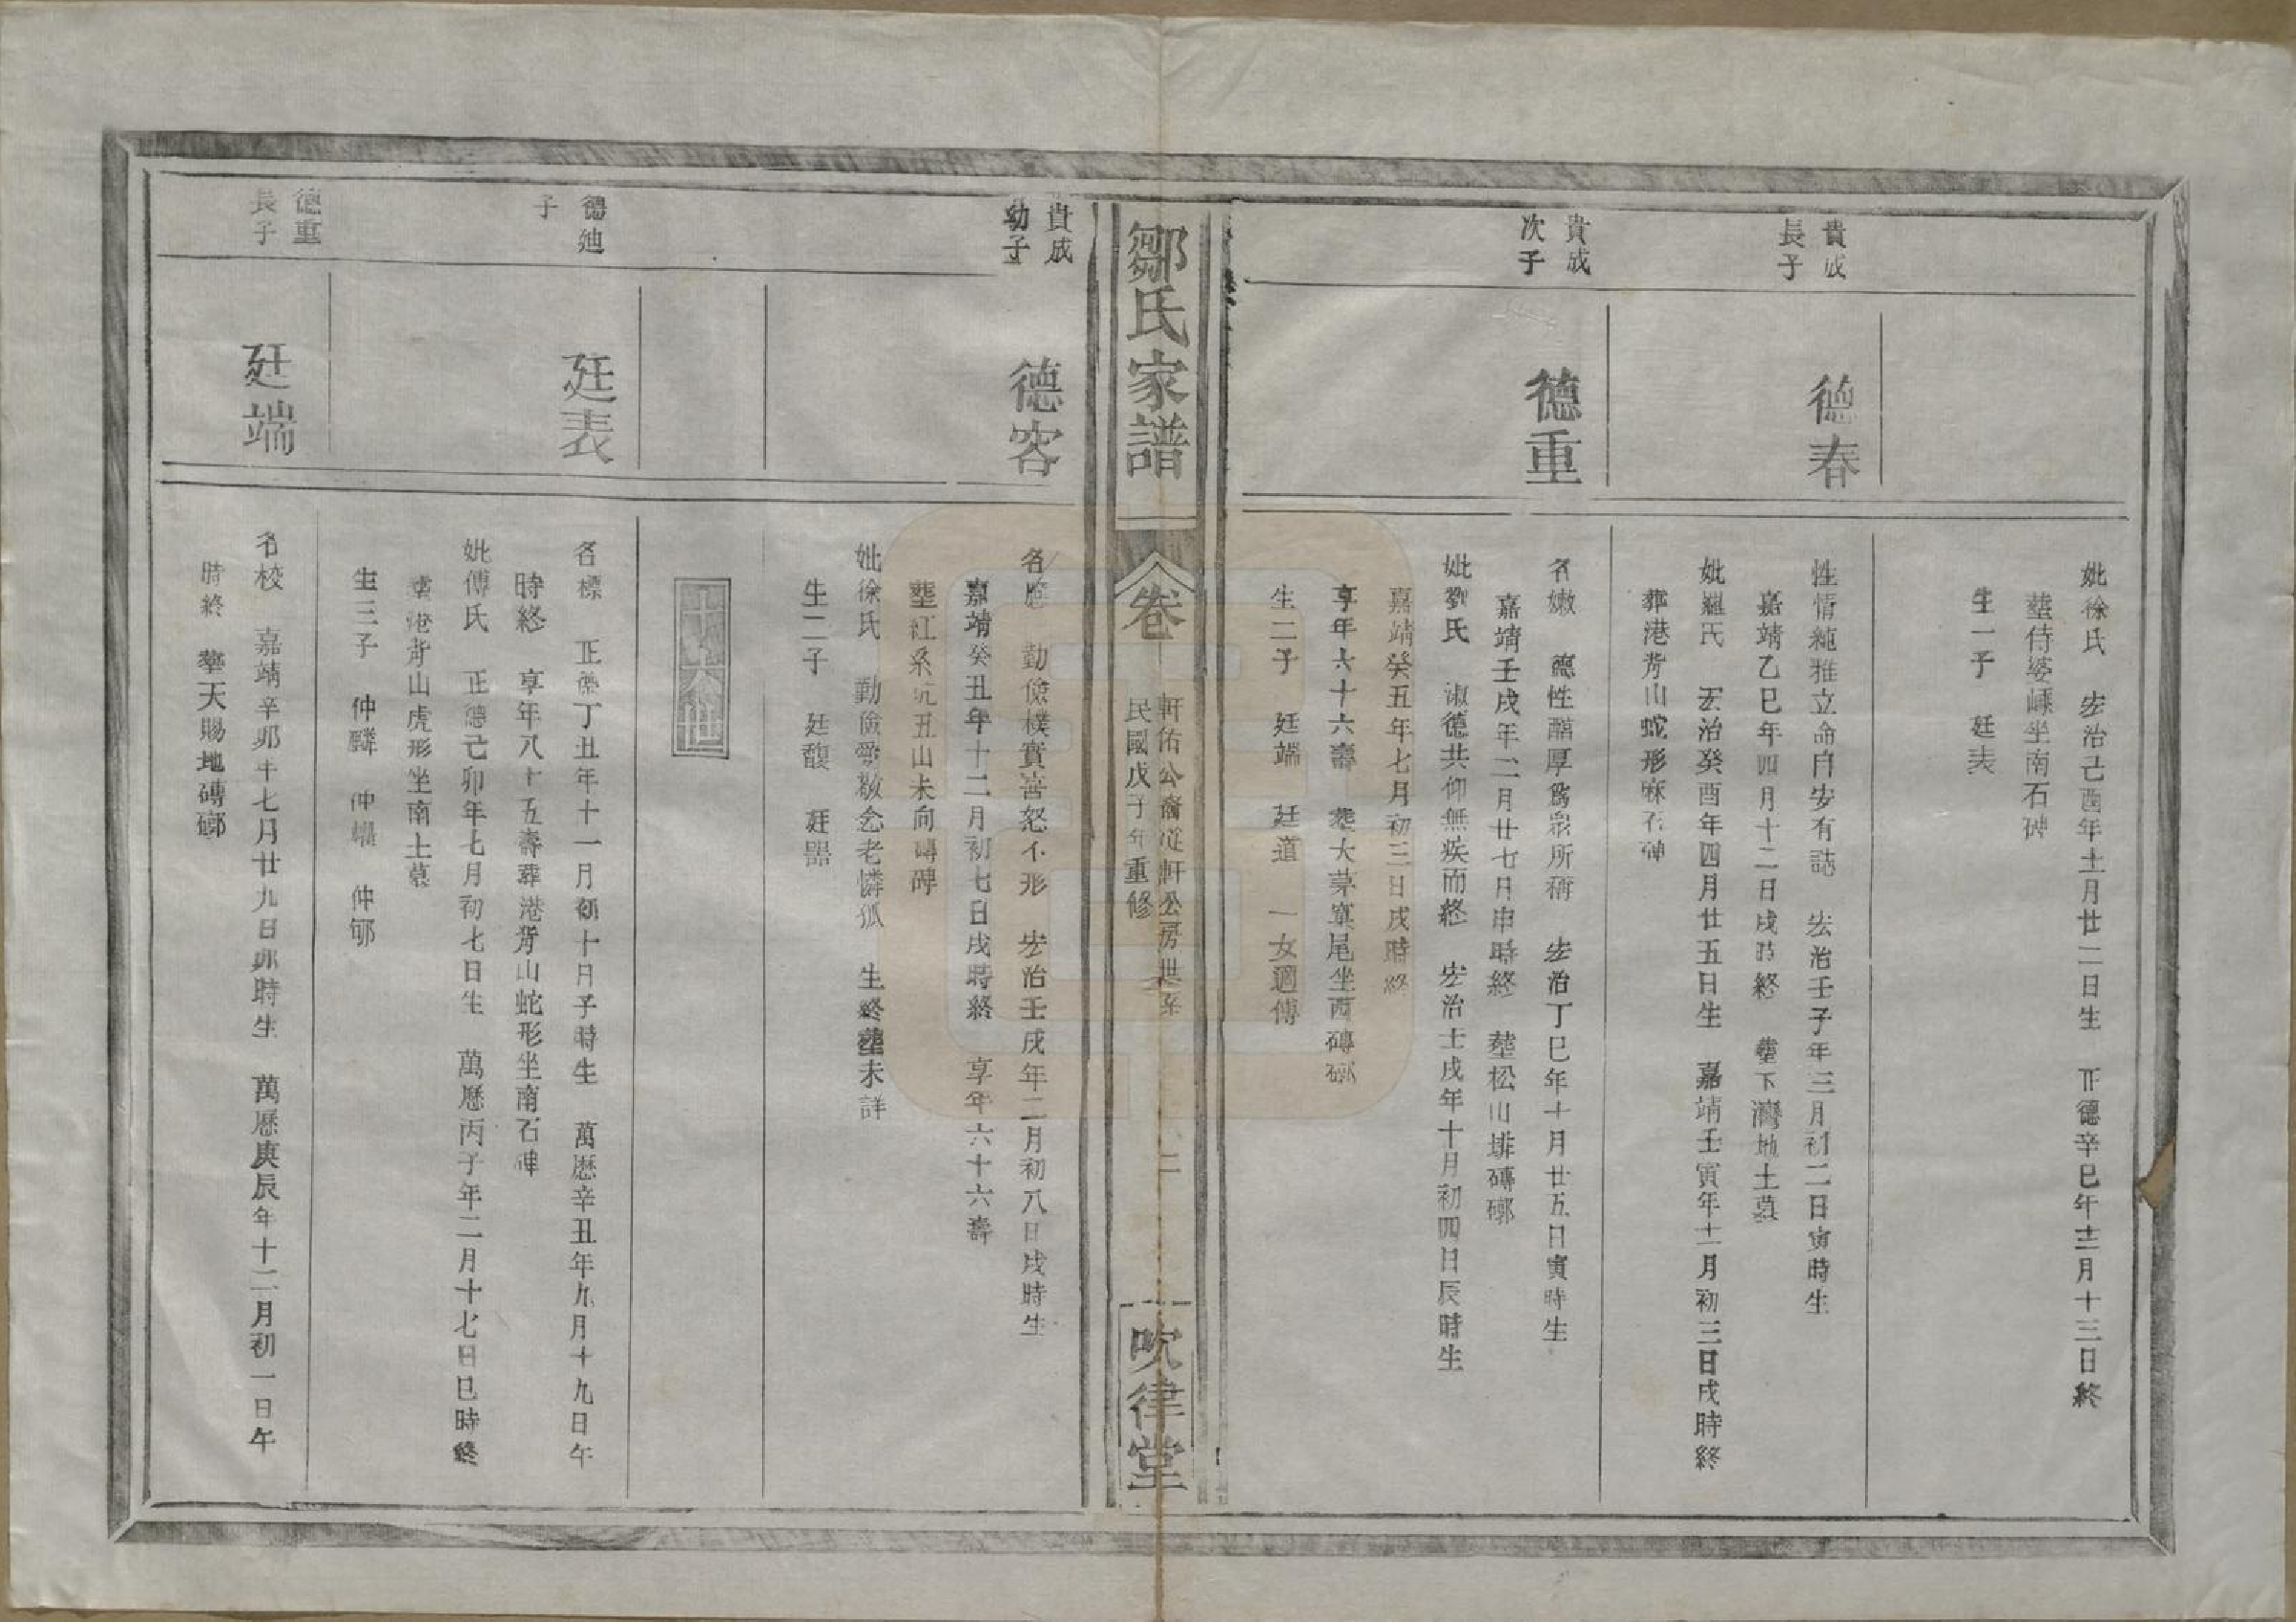 妣徐氏　宏治己酉年士月廿二日生　正德辛巳年士二月十三日終
塟侍婆嵊坐南石碑
生一子　廷表
貴成
長子
德春
性情純雅立命自安有誌　宏治壬子年三月初二日寅時生
嘉靖乙巳年四月十二日戌時終　塟下灣地土墓
妣羅氏　宏治癸酉年四月廿五日生　嘉靖壬寅年十一月初三日戌時終
葬港背山蛇形麻石碑
貴成
次子
德重
名嫩　德性醇厚爲衆所稱　宏治丁巳年十月廿五日寅時生
嘉靖壬戌年二月廿七日申時終　塟松山排磚槨
妣劉氏　淑德共仰無疾而終　宏治士戌年十月初四日辰時生
嘉靖癸五年七月初三日戌時終
享年六十六壽　塟大茅窠尾坐西磚槨
生二子　廷端　廷道　一女適傅
鄒氏家譜
卷一
軒佑公裔從軒公房世系
民國戊子年重修
二
吹律堂
貴成
幼子
德容
名　勤儉樸實喜怒不形　宏治壬戌年二月初八日戌時生
嘉靖癸丑年十二月初七日戌時終　享年六十六壽
塟江系坑丑山未向磚碑
妣徐氏　勤儉愛敬念老憐孤　生終塟未詳
生二子　廷馥　廷器
十六世
德廸
子
廷表
名標　正德丁丑年十一月初十日子時生　萬曆辛丑年九月十九日午
時終　享年八十五壽葬港背山蛇形坐南石碑
妣傅氏　正德己卯年七月初七日生　萬曆丙子年二月十七日巳時終
塟港背山虎形坐南土墓
生三子　仲麟　仲　仲郇
德重
長子
廷端
名校　嘉靖辛卯年七月廿九日卯時生　萬曆庚辰年十二月初一日午
時終　塟天賜地磚槨